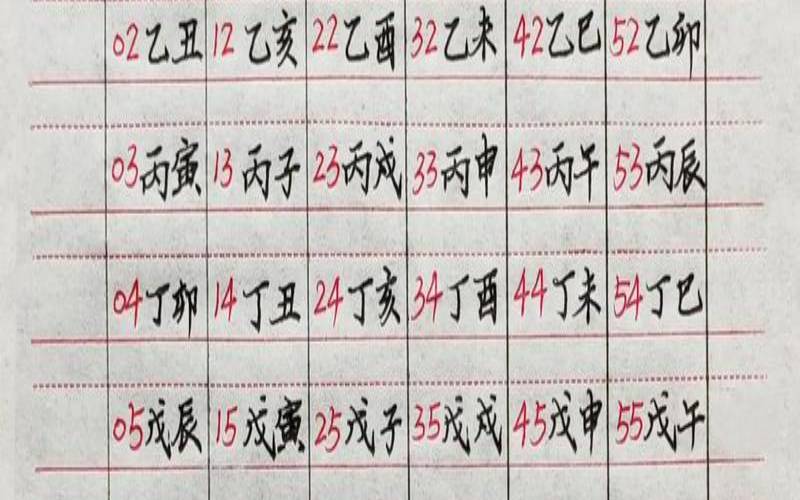 02乙丑 12乙亥 22乙酉 32乙未 42乙巳 52乙卯
03丙寅 13丙子 23丙戌 33丙申 43丙午 53丙辰
04丁卯 14丁丑 24丁亥 34丁酉 44丁未 54丁巳
05戊辰 15戊寅 25戊子 35戊戌 45戊申 55戊午